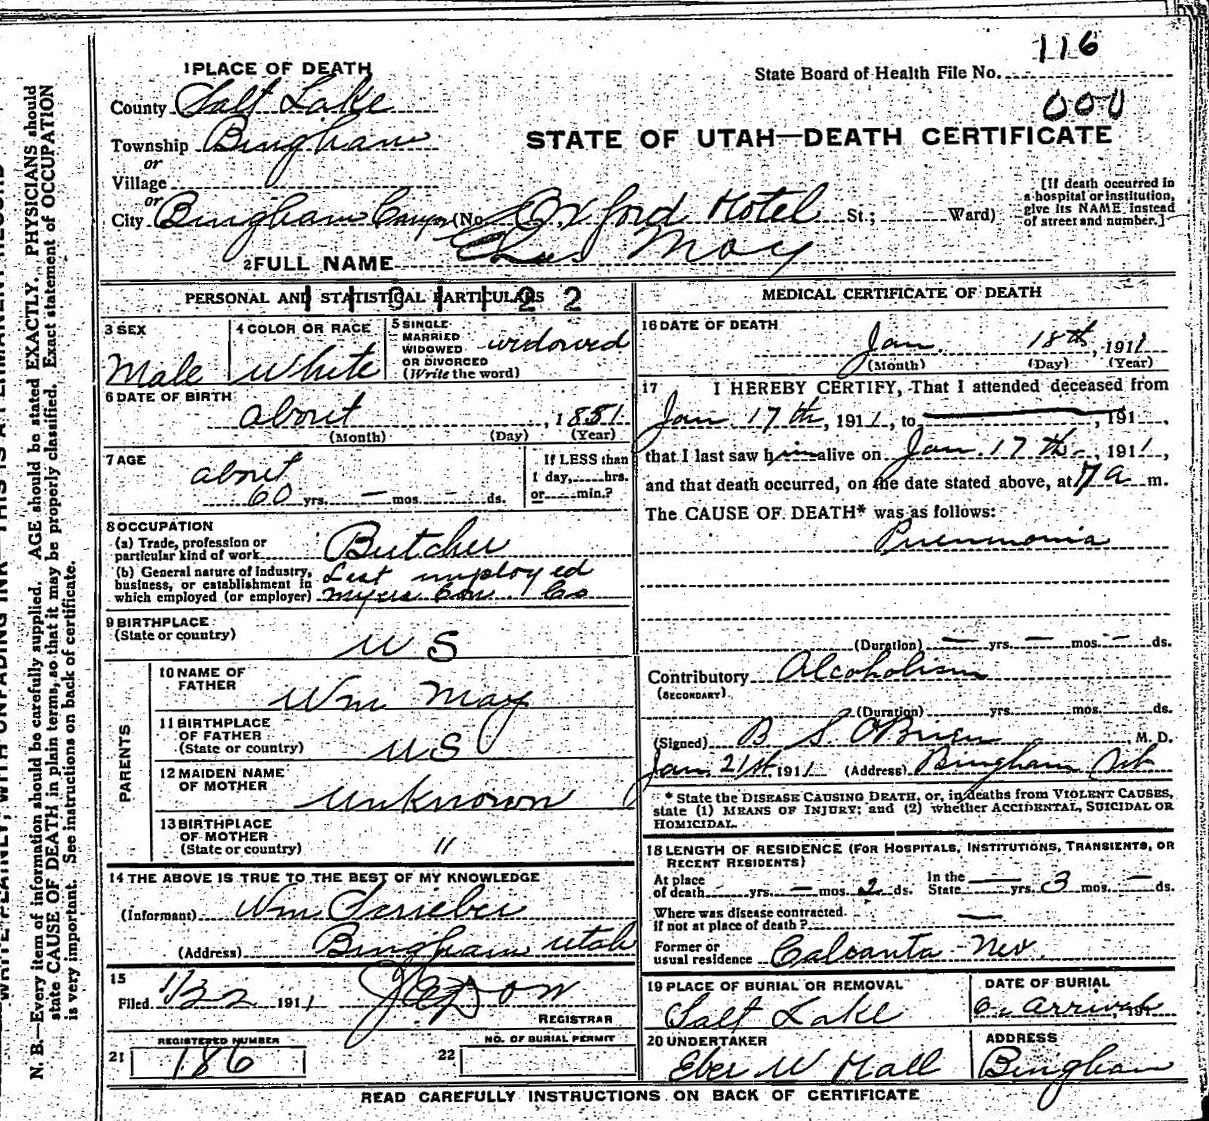 116
1 PLACE OF DEATH
State Board of Health File No.
County Salt Lake
000
Township Bingham
STATE OF UTAH—DEATH CERTIFICATE
or
Village
or
City Bingham Canyon (No. Oxford Hotel St.; Ward)
[If death occurred in a hospital or institution, give its NAME instead of street and number.]
2 FULL NAME Chas May
PERSONAL AND STATISTICAL PARTICULARS
3 SEX
Male
4 COLOR OR RACE
White
5 SINGLE MARRIED WIDOWED OR DIVORCED (Write the word)
widowed
6 DATE OF BIRTH
about, 1851
(Month) (Day) (Year)
7 AGE
about
60 yrs. — mos. — ds.
If LESS than 1 day, hrs. or min.?
8 OCCUPATION
(a) Trade, profession or particular kind of work Butcher
(b) General nature of industry, business, or establishment in which employed (or employer)
Last employed
Myers Co
9 BIRTHPLACE
(State or country) U S
PARENTS
10 NAME OF FATHER
Wm May
11 BIRTHPLACE OF FATHER (State or country)
U S
12 MAIDEN NAME OF MOTHER
Unknown
13 BIRTHPLACE OF MOTHER (State or country)
"
14 THE ABOVE IS TRUE TO THE BEST OF MY KNOWLEDGE
(Informant) Wm Scrieber
(Address) Bingham Utah
15
Filed 1/22 1911
REGISTRAR
REGISTERED NUMBER
21 186
NO. OF BURIAL PERMIT
22
MEDICAL CERTIFICATE OF DEATH
16 DATE OF DEATH
Jan. 18th, 1911
(Month) (Day) (Year)
17 I HEREBY CERTIFY, That I attended deceased from
Jan 17th, 1911, to , 191 ,
that I last saw him alive on Jan 17th, 1911,
and that death occurred, on the date stated above, at 7 a m.
The CAUSE OF DEATH* was as follows:
Pneumonia
(Duration) — yrs. — mos. — ds.
Contributory Alcoholism
(SECONDARY)
(Duration) yrs. mos. ds.
(Signed) B S O'Brien M. D.
Jan. 21st 1911 (Address) Bingham Ut
* State the DISEASE CAUSING DEATH, or, in deaths from VIOLENT CAUSES,
state (1) MEANS OF INJURY; and (2) whether ACCIDENTAL, SUICIDAL OR
HOMICIDAL.
18 LENGTH OF RESIDENCE (FOR HOSPITALS, INSTITUTIONS, TRANSIENTS, OR
RECENT RESIDENTS)
At place of death yrs. — mos. 2 ds. In the State — yrs. 3 mos. — ds.
Where was disease contracted. if not at place of death? —
Former or usual residence Caloanta Nev.
19 PLACE OF BURIAL OR REMOVAL
Salt Lake
DATE OF BURIAL
On arrival 191
20 UNDERTAKER
Eber W Hall
ADDRESS
Bingham
READ CAREFULLY INSTRUCTIONS ON BACK OF CERTIFICATE
N. B.—Every item of information should be carefully supplied. AGE should be stated EXACTLY. PHYSICIANS should
state CAUSE OF DEATH in plain terms, so that it may be properly classified. Exact statement of OCCUPATION
is very important. See instructions on back of certificate.